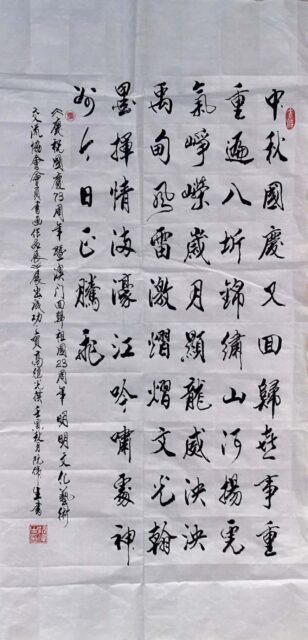 中秋國慶又回歸喜事重
重遍八圻錦繡山河揚虎
氣崢嶸歲月顯龍威泱泱
禹甸風雷激熠熠文光翰
墨揮情滿濠江吟嘯處神
州今日正騰飛
慶祝國慶73周年暨澳門回歸祖國23周年明明文化藝術
交流協會會員書画作品展展出成功之賀高德光撰壬寅秋月阮偉生書